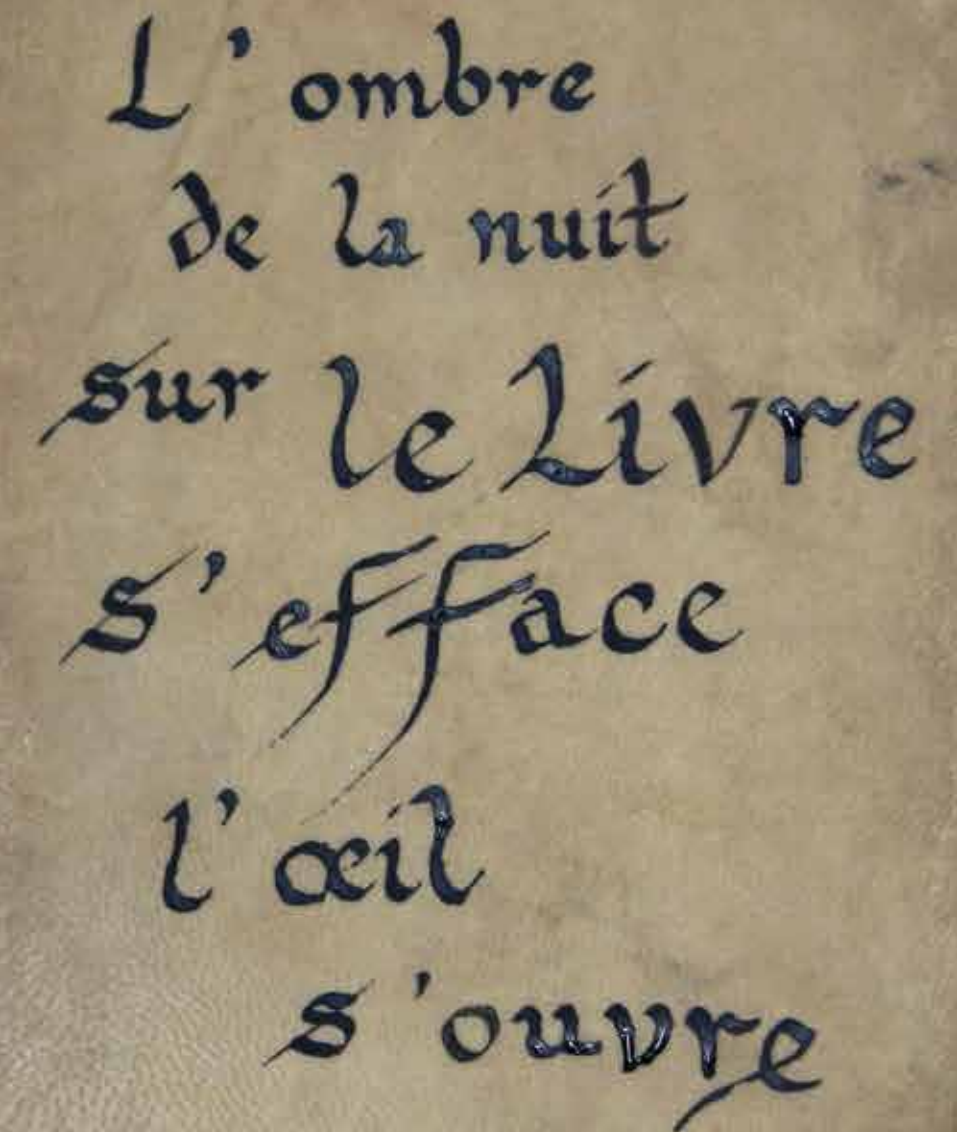 L'ombre
de la nuit
sur le Livre
s'efface
l'œil
s'ouvre